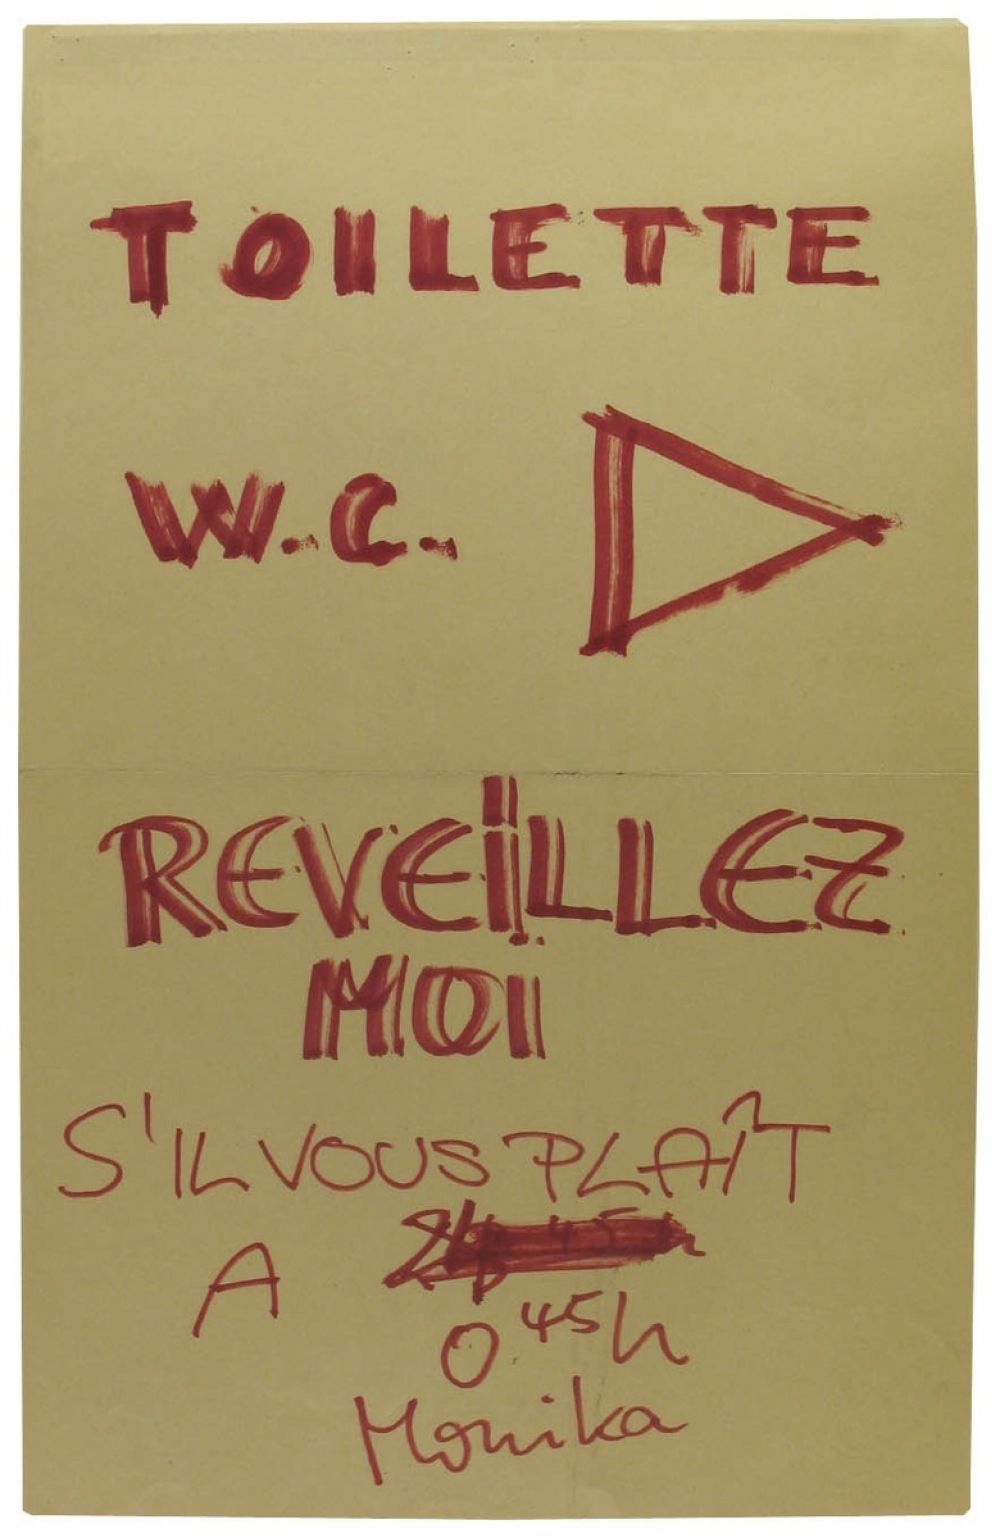 TOILETTE
W.C.
REVEILLEZ
MOI
S'IL VOUS PLAÎT
A
0.45h
Monika